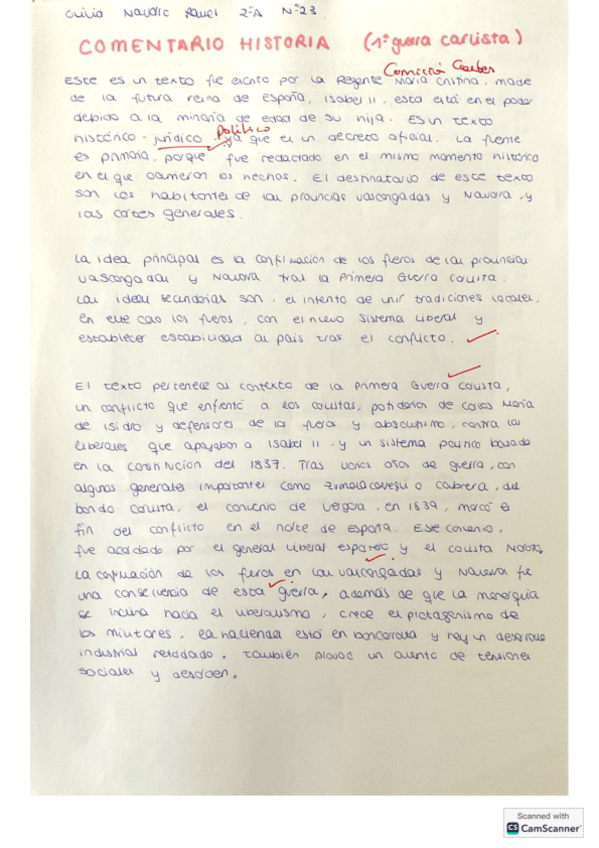 Navarro 2ºA Nº23
COMENTARIO HISTORIA (1ª guerra carlista)
Comisión Cortes
Este es un texto fue escrito por la Regente María Cristina, madre
de la futura reina de España, Isabel II, esta está en el poder
debido a la minoría de edad de su hija. Es un texto
Político
histórico - jurídico, ya que es un decreto oficial. La fuente
es primaria, porque fue redactado en el mismo momento histórico
en el que ocurrieron los hechos. El destinatario de este texto
son los habitantes de las provincias vascongadas y Navarra, y
las cortes generales.
La idea principal es la confirmación de los fueros de las provincias
vascongadas y Navarra tras la Primera Guerra Carlista.
Las ideas secundarias son, el intento de unir tradiciones locales,
en este caso los fueros, con el nuevo sistema liberal y
establecer estabilidad al país tras el conflicto.
El texto pertenece al contexto de la Primera Guerra Carlista,
un conflicto que enfrentó a los carlistas, partidarios de Carlos María
de Isidro y defensores de los fueros y absolutismo, contra los
liberales que apoyaban a Isabel II y un sistema político basado
en la constitución del 1837. Tras varios años de guerra, con
algunos generales importantes como Zumalacarregui o Cabrera, del
bando carlista, el convenio de Vergara, en 1839, marcó el
fin del conflicto en el norte de España. Este convenio,
fue acordado por el general liberal Espartero y el carlista Maroto,
La confirmación de los fueros en las vascongadas y Navarra fue
una consecuencia de esta guerra, además de que la monarquía
se inclina hacia el liberalismo, crece el protagonismo de
los militares, la hacienda está en bancarrota y hay un desarrollo
industrial retardado. También provocó un aumento de tensiones
sociales y desorden.
Scanned with
CS CamScanner